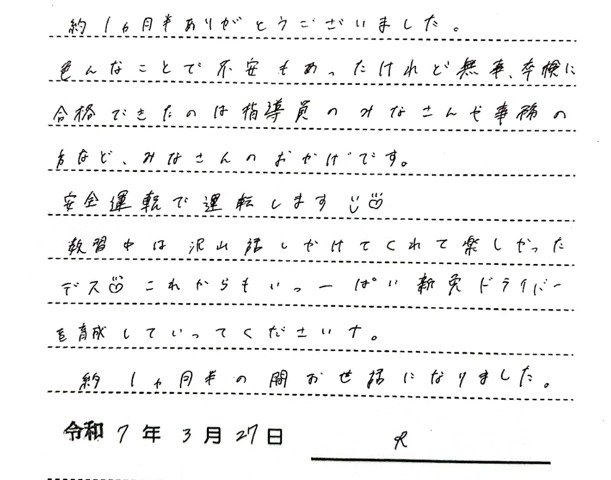 約1ヵ月半ありがとうございました。
色んなことで不安もあったけれど無事、卒検に
合格できたのは指導員のみなさんや事務の
方など、みなさんのおかげです。
安全運転で運転します
教習中は沢山話しかけてくれて楽しかった
デス これからもいっーぱい新免ドライバー
を育成していってくださいナ。
約1ヵ月半の間お世話になりました。
令和7年3月27日 R